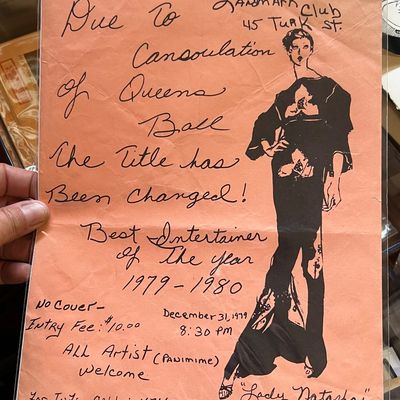 Landmark Club
45 Turk St.
Due To
Cansoulation
of Queens
Ball
The Title has
Been Changed!
Best Intertainer
of The year
1979-1980
No Cover-
Entry Fee: $10.00
December 31, 1979
8:30 PM
ALL Artist (Panimime)
Welcome
"Lady Natasha"